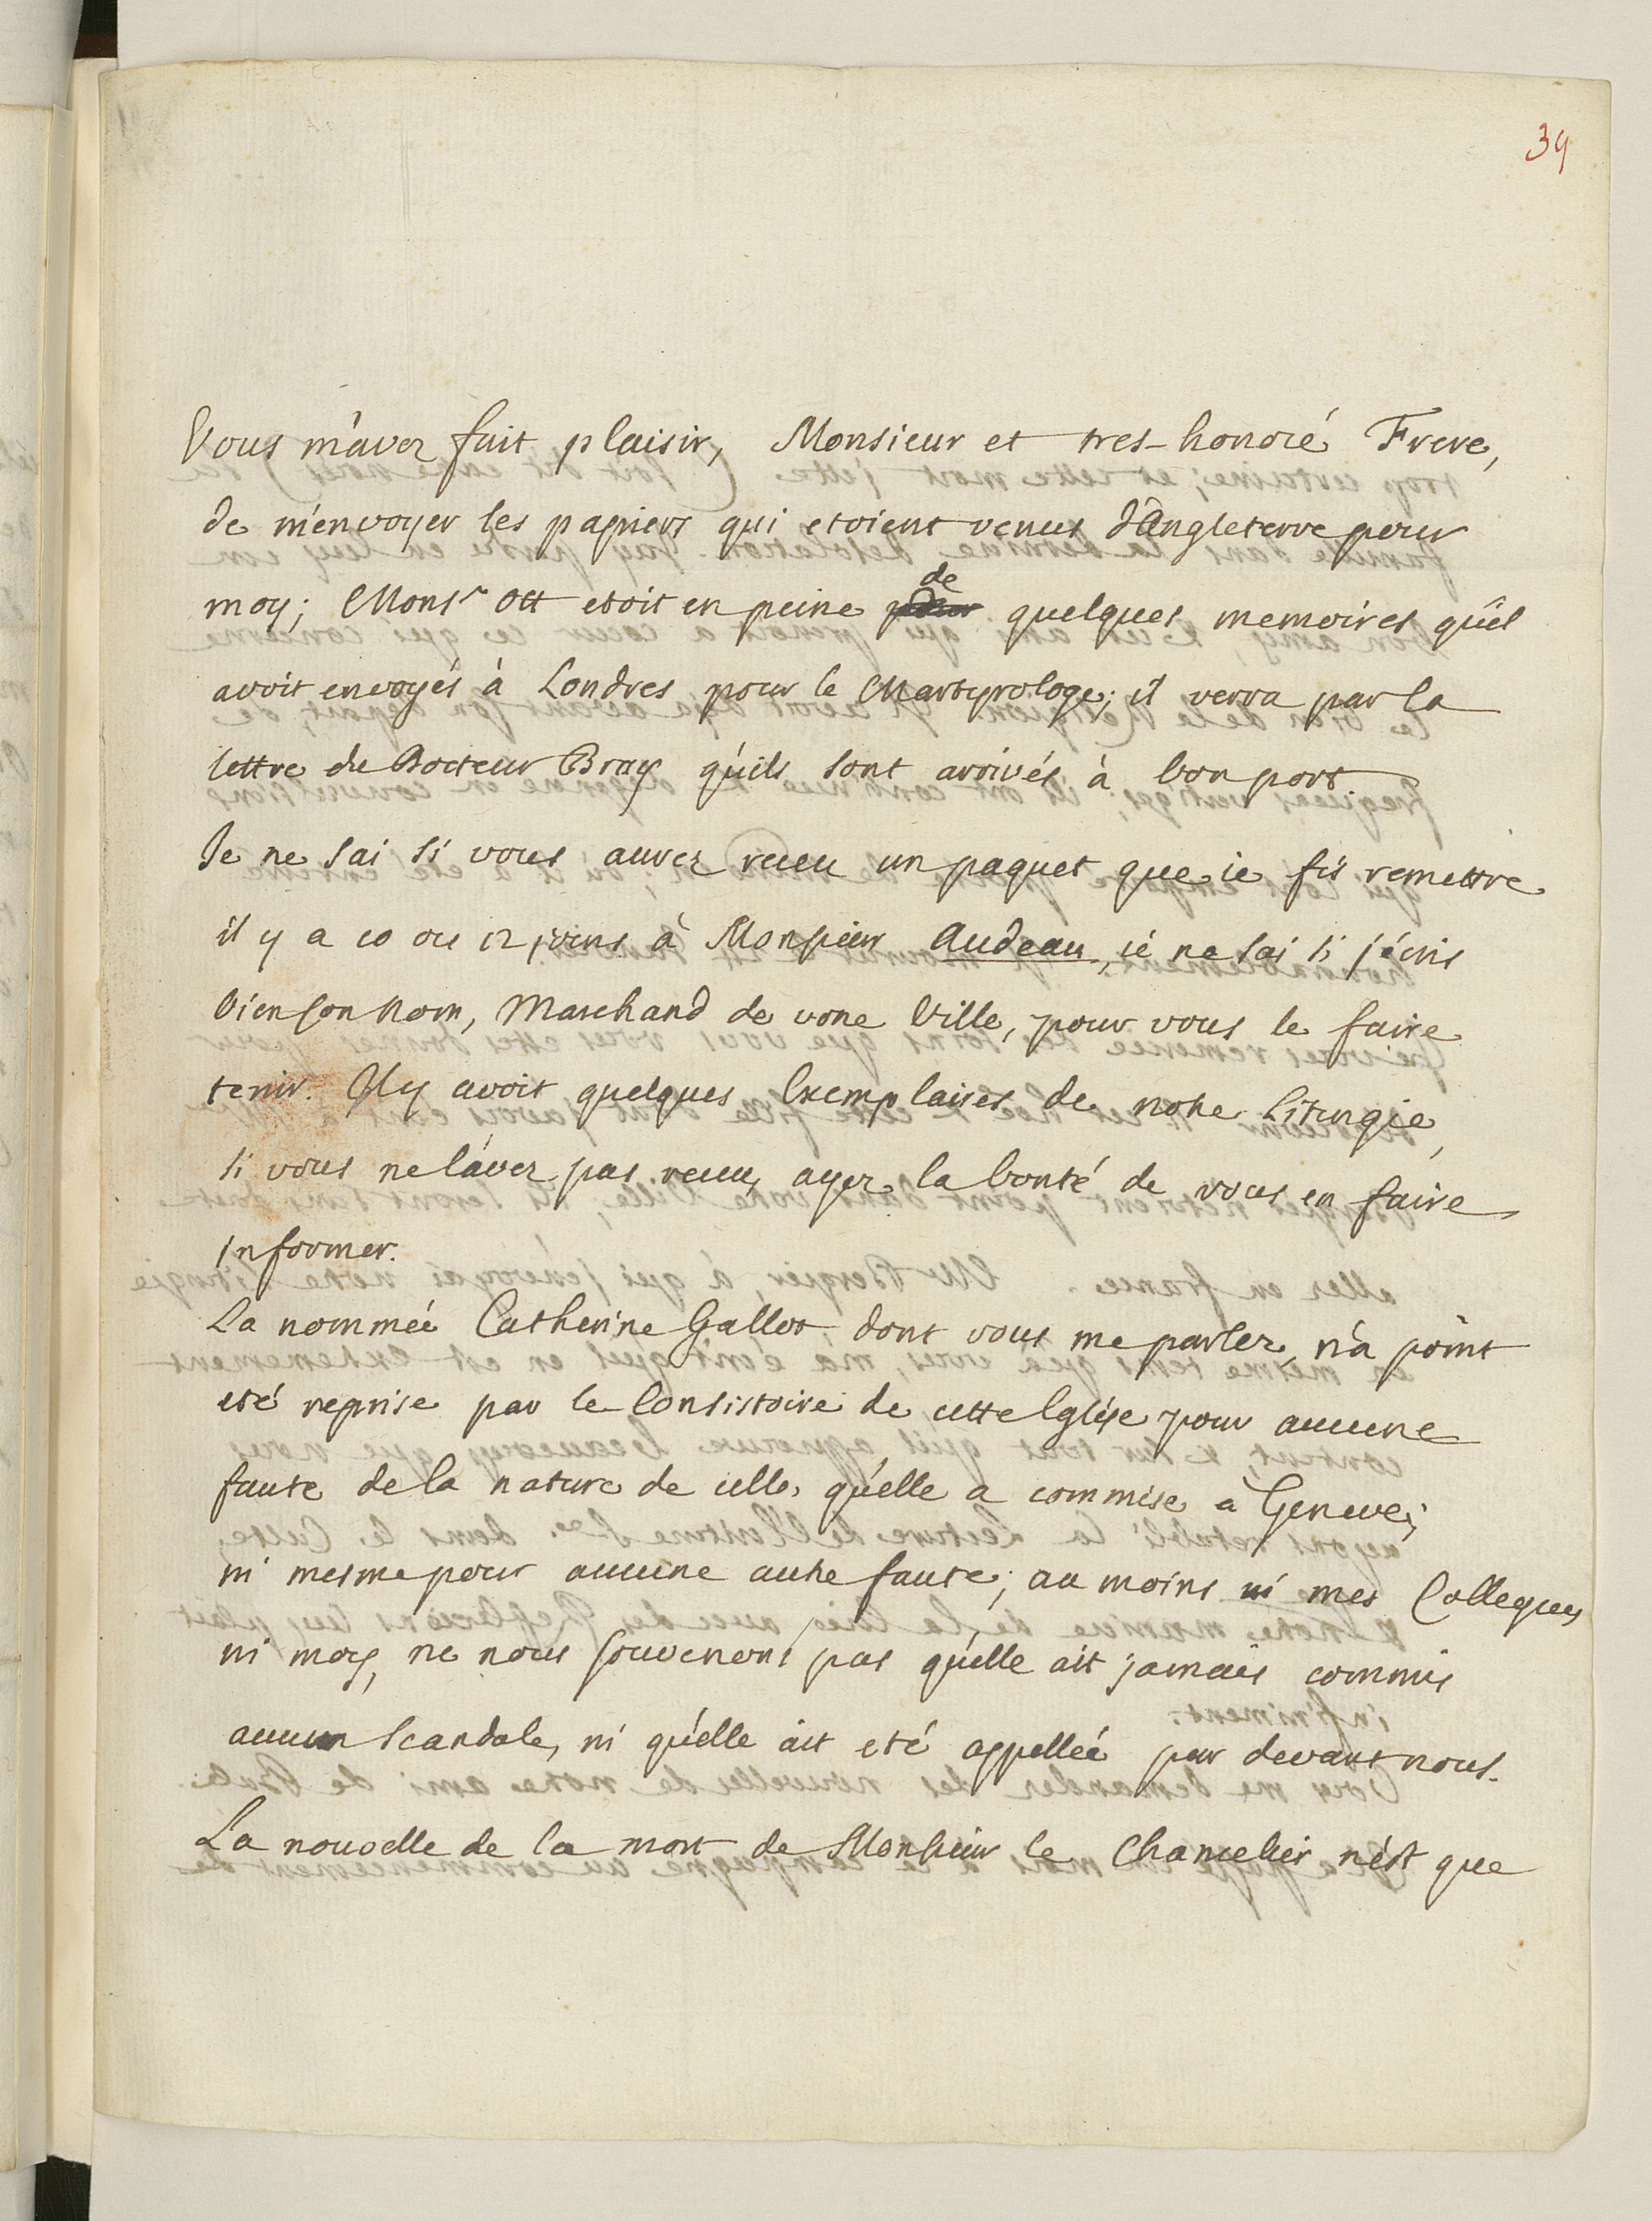 39
Vous m'avez fait plaisir, Monsieur et tres-honoré Frere,
de m'envoyer les papiers qui etoient venus d'Angleterre pour
moy; Monsr Ott etoit en peine de quelques memoires qu'il
avoit envoyés à Londres pour le Martyrologe; il verra par la
lettre du Docteur Bray qu'ils sont arrivés à bon port.
Je ne sai si vous aurez receu un paquet que ie fis remettre
il y a 10 ou 12 jours à Monsieur Audeau, ie ne sai si j'écris
bien son Nom, Marchand de votre Ville, pour vous le faire
tenir. Il y avoit quelques Exemplaires de notre Liturgie,
si vous ne l'avez pas receu, ayez la bonté de vous en faire
informer.
La nommée Catherine Gallot dont vous me parlez, n'a point
eté reprise par le Consistoire de cette Eglise pour aucune
faute de la nature de celle, qu'elle a commise à Geneve;
ni mesme pour aucune autre faute; au moins ni mes Collegues
ni moy, ne nous souvenons pas qu'elle ait jamais commis
aucun scandale, ni qu'elle ait eté appellée par devant nous.
La nouvelle de la mort de Monsieur le Chancelier n'est que